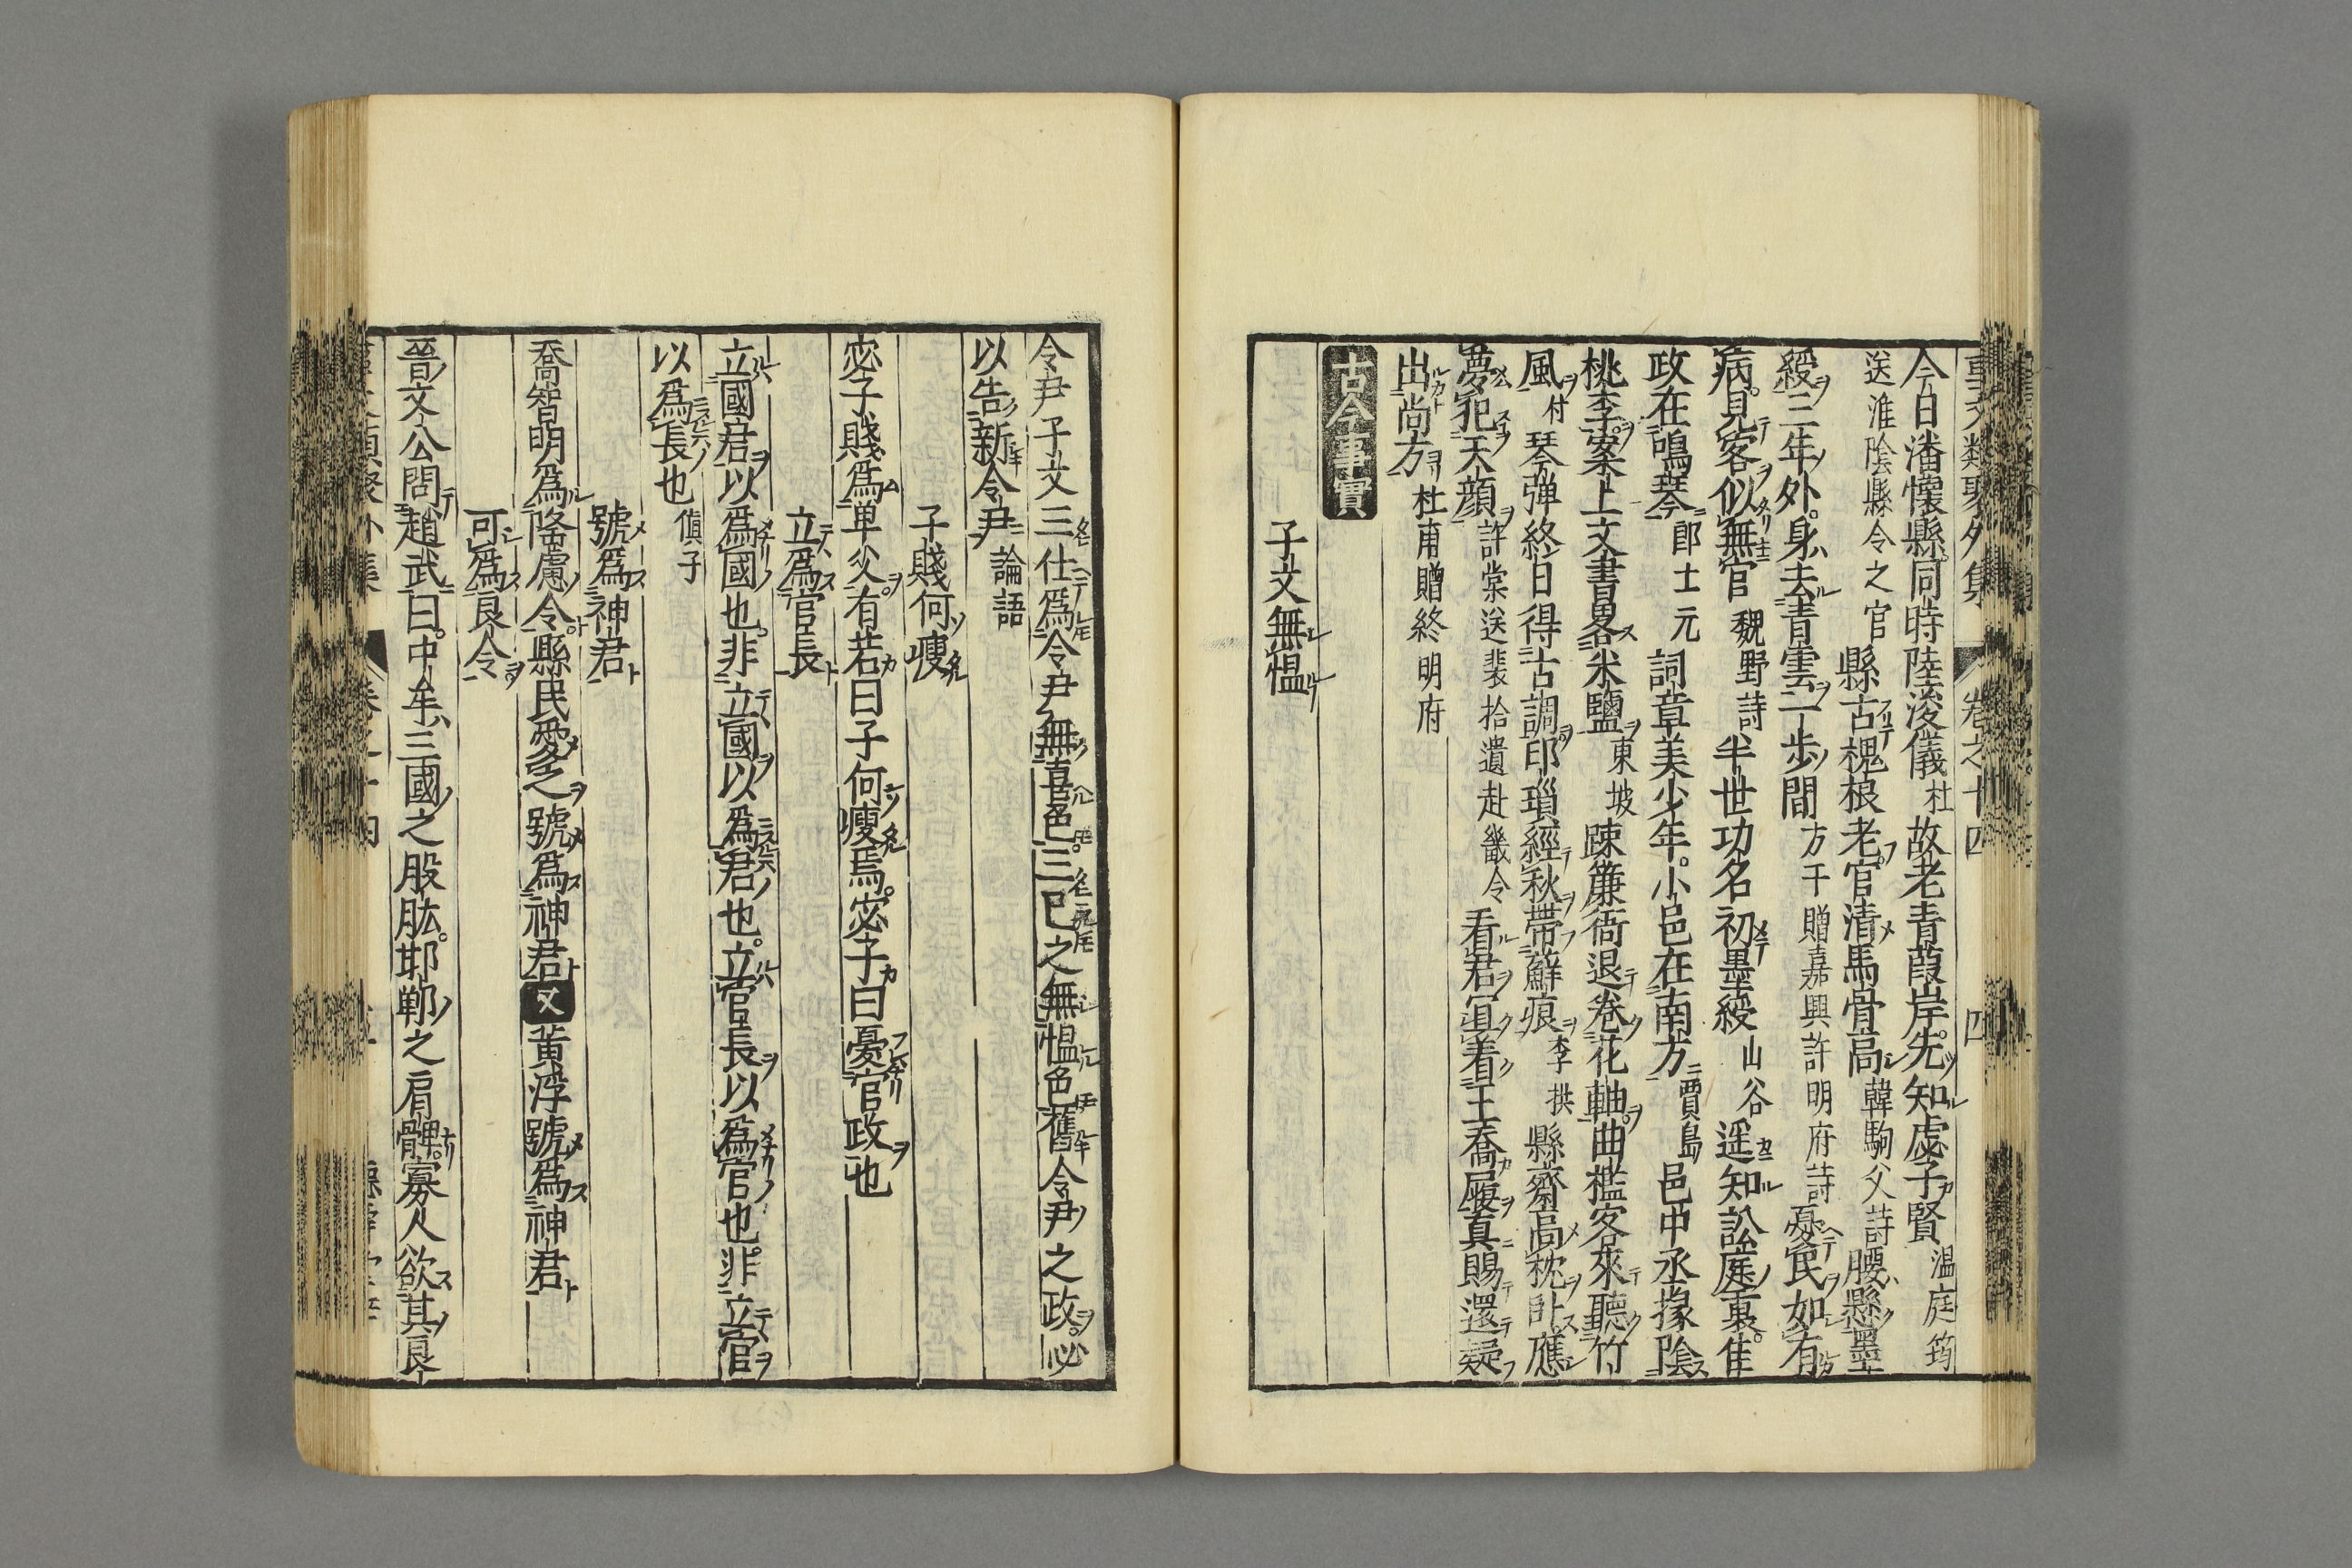 事文類聚外集 卷之十四 四
今日潘懷縣同時陸浚儀杜故老青葭岸先知虙子賢溫庭筠
送淮陰縣令之官縣古槐根老官清馬骨高韓駒父詩腰縣墨
綬三年外身去青雲一步間方干贈嘉興許明府詩憂民如有
病見客似無官魏野詩半世功名初墨綬山谷遥知訟庭裏佳
政在鳴琴郎士元詞章美少年小邑在南方賈島邑中丞掾陰
桃李案上文書略米鹽東坡踈簾衙退卷花軸曲檻客來聽竹
風付琴弹終日得古調印瑣經秋帶蘚痕李拱縣齋高枕卧應
夢犯天顔許棠送裴拾遺赴畿令看君宜着王喬履真賜還疑
出尚方杜甫贈終明府
古今事實
子文無愠
令尹子文三仕爲令尹無喜色三已之無愠色舊令尹之政必
以告新令尹論語
子賤何瘦
宓子賤爲单父有若曰子何瘦焉宓子曰憂官政也
立爲官長
立國君以爲國也非立國以爲君也立官長以爲官也非立官
以爲長也慎子
號爲神君
喬智明爲隆慮令縣民愛之號爲神君又黃浮號爲神君
可爲良令
晉文公問趙武曰中牟三國之股肱邯鄲之肩髀寡人欲其良